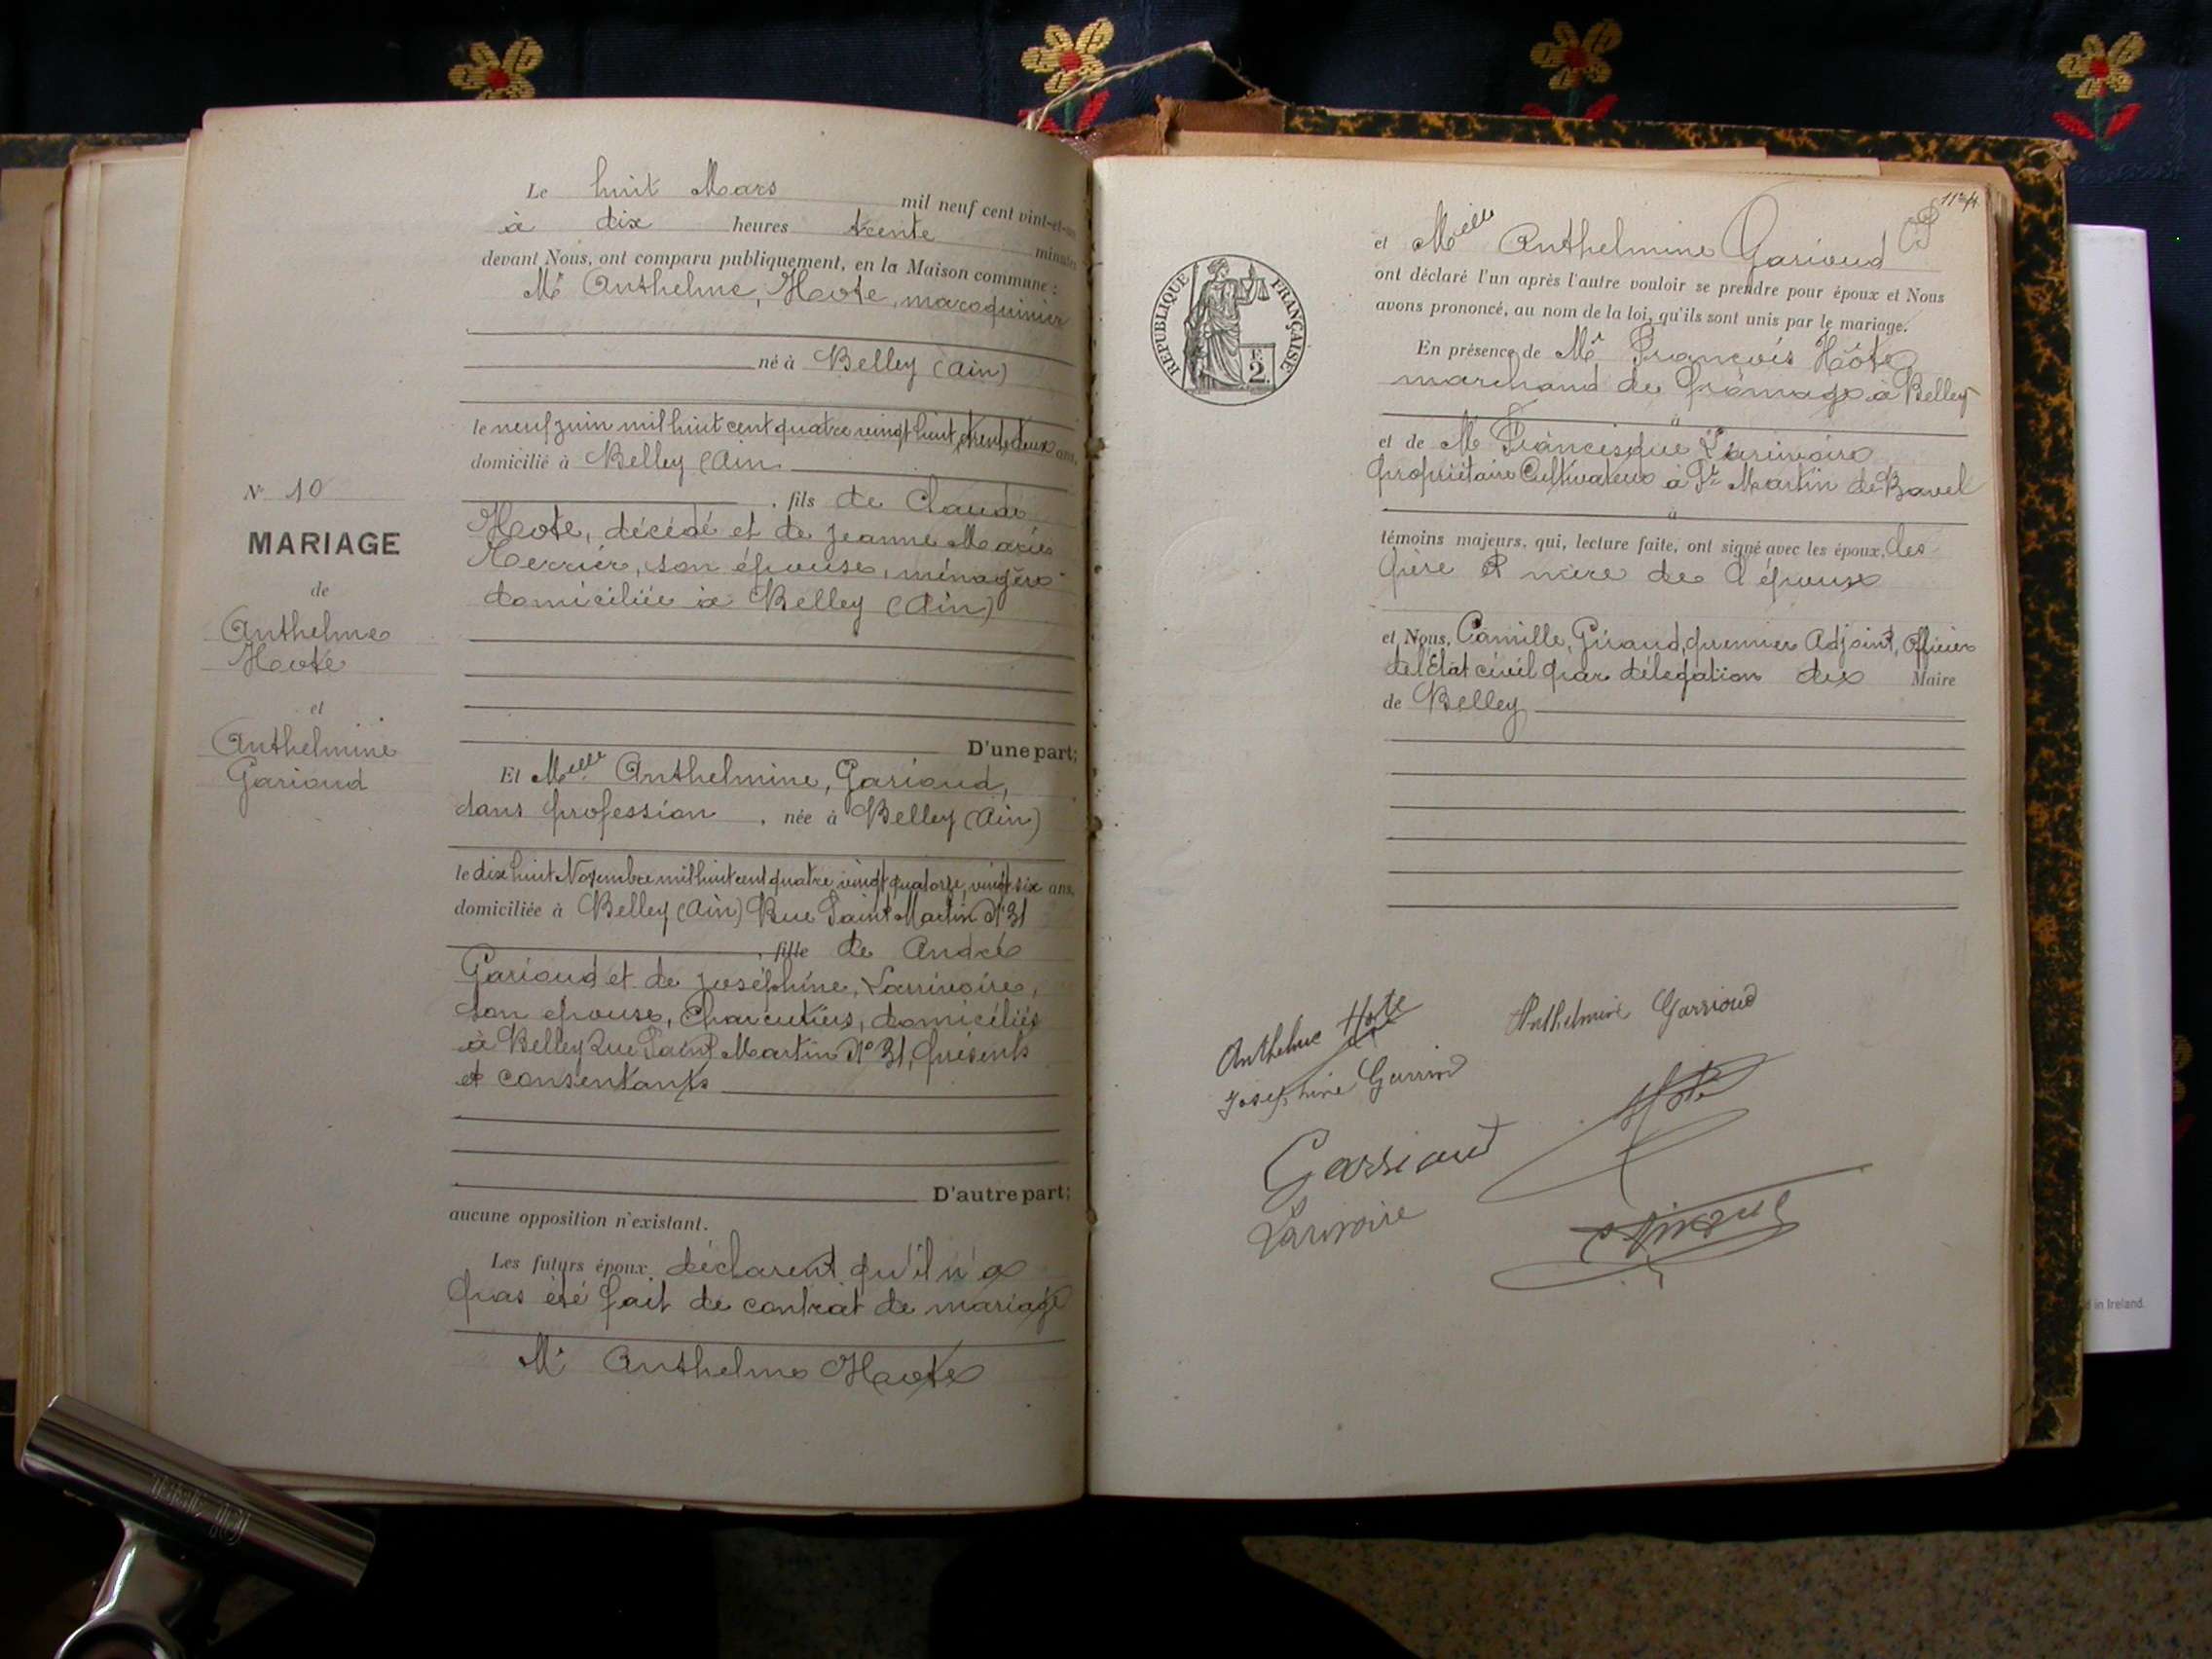 N° 10
MARIAGE
de
Anthelme
Hote
et
Anthelmine
Garioud
Le huit Mars mil neuf cent vint-et-un
à dix heures trente minutes
devant Nous, ont comparu publiquement, en la Maison commune :
Mr Anthelme, Hote, maroquinier
né à Belley (Ain)
le neuf juin mil huit cent quatre vingt huit, trente deux ans,
domicilié à Belley (Ain
, fils de Claude
Hote, décédé et de Jeanne Marie
son épouse, ménagère
domiciliée à Belley (Ain)
D'une part;
Et Melle Anthelmine, Garioud,
sans profession , née à Belley (Ain)
le dix huit Novembre mil huit cent quatre vingt quatorze, vingt six ans,
domiciliée à Belley (Ain) Rue Saint Martin N° 31
, fille de André
Garioud et de Joséphine, Larrivoire,
son épouse, Charcutiers, domiciliés
à Belley Rue Saint Martin N° 31, présents
et consentants
D'autre part;
aucune opposition n'existant.
Les futurs époux déclarent qu'il n'a
pas été fait de contrat de mariage
Mr Anthelme Hote
REPUBLIQUE FRANÇAISE
F.
2
et Melle Anthelmine Garioud
ont déclaré l'un après l'autre vouloir se prendre pour époux et Nous
avons prononcé, au nom de la loi, qu'ils sont unis par le mariage.
En présence de Mr François Hôte
marchand de fromage à Belley
à
et de M Francisque Larivoire
propriétaire Cultivateur à St Martin de Bavel
à
témoins majeurs, qui, lecture faite, ont signé avec les époux, les
père et mère de l'épouse
et Nous, Camille, Giraud, premier Adjoint, Officier
de l'État civil par délégation du Maire
de Belley
Anthelme Hote
Anthelmine Garrioud
Josephine
Hote
Garrioud
Larivoire
d in Ireland.